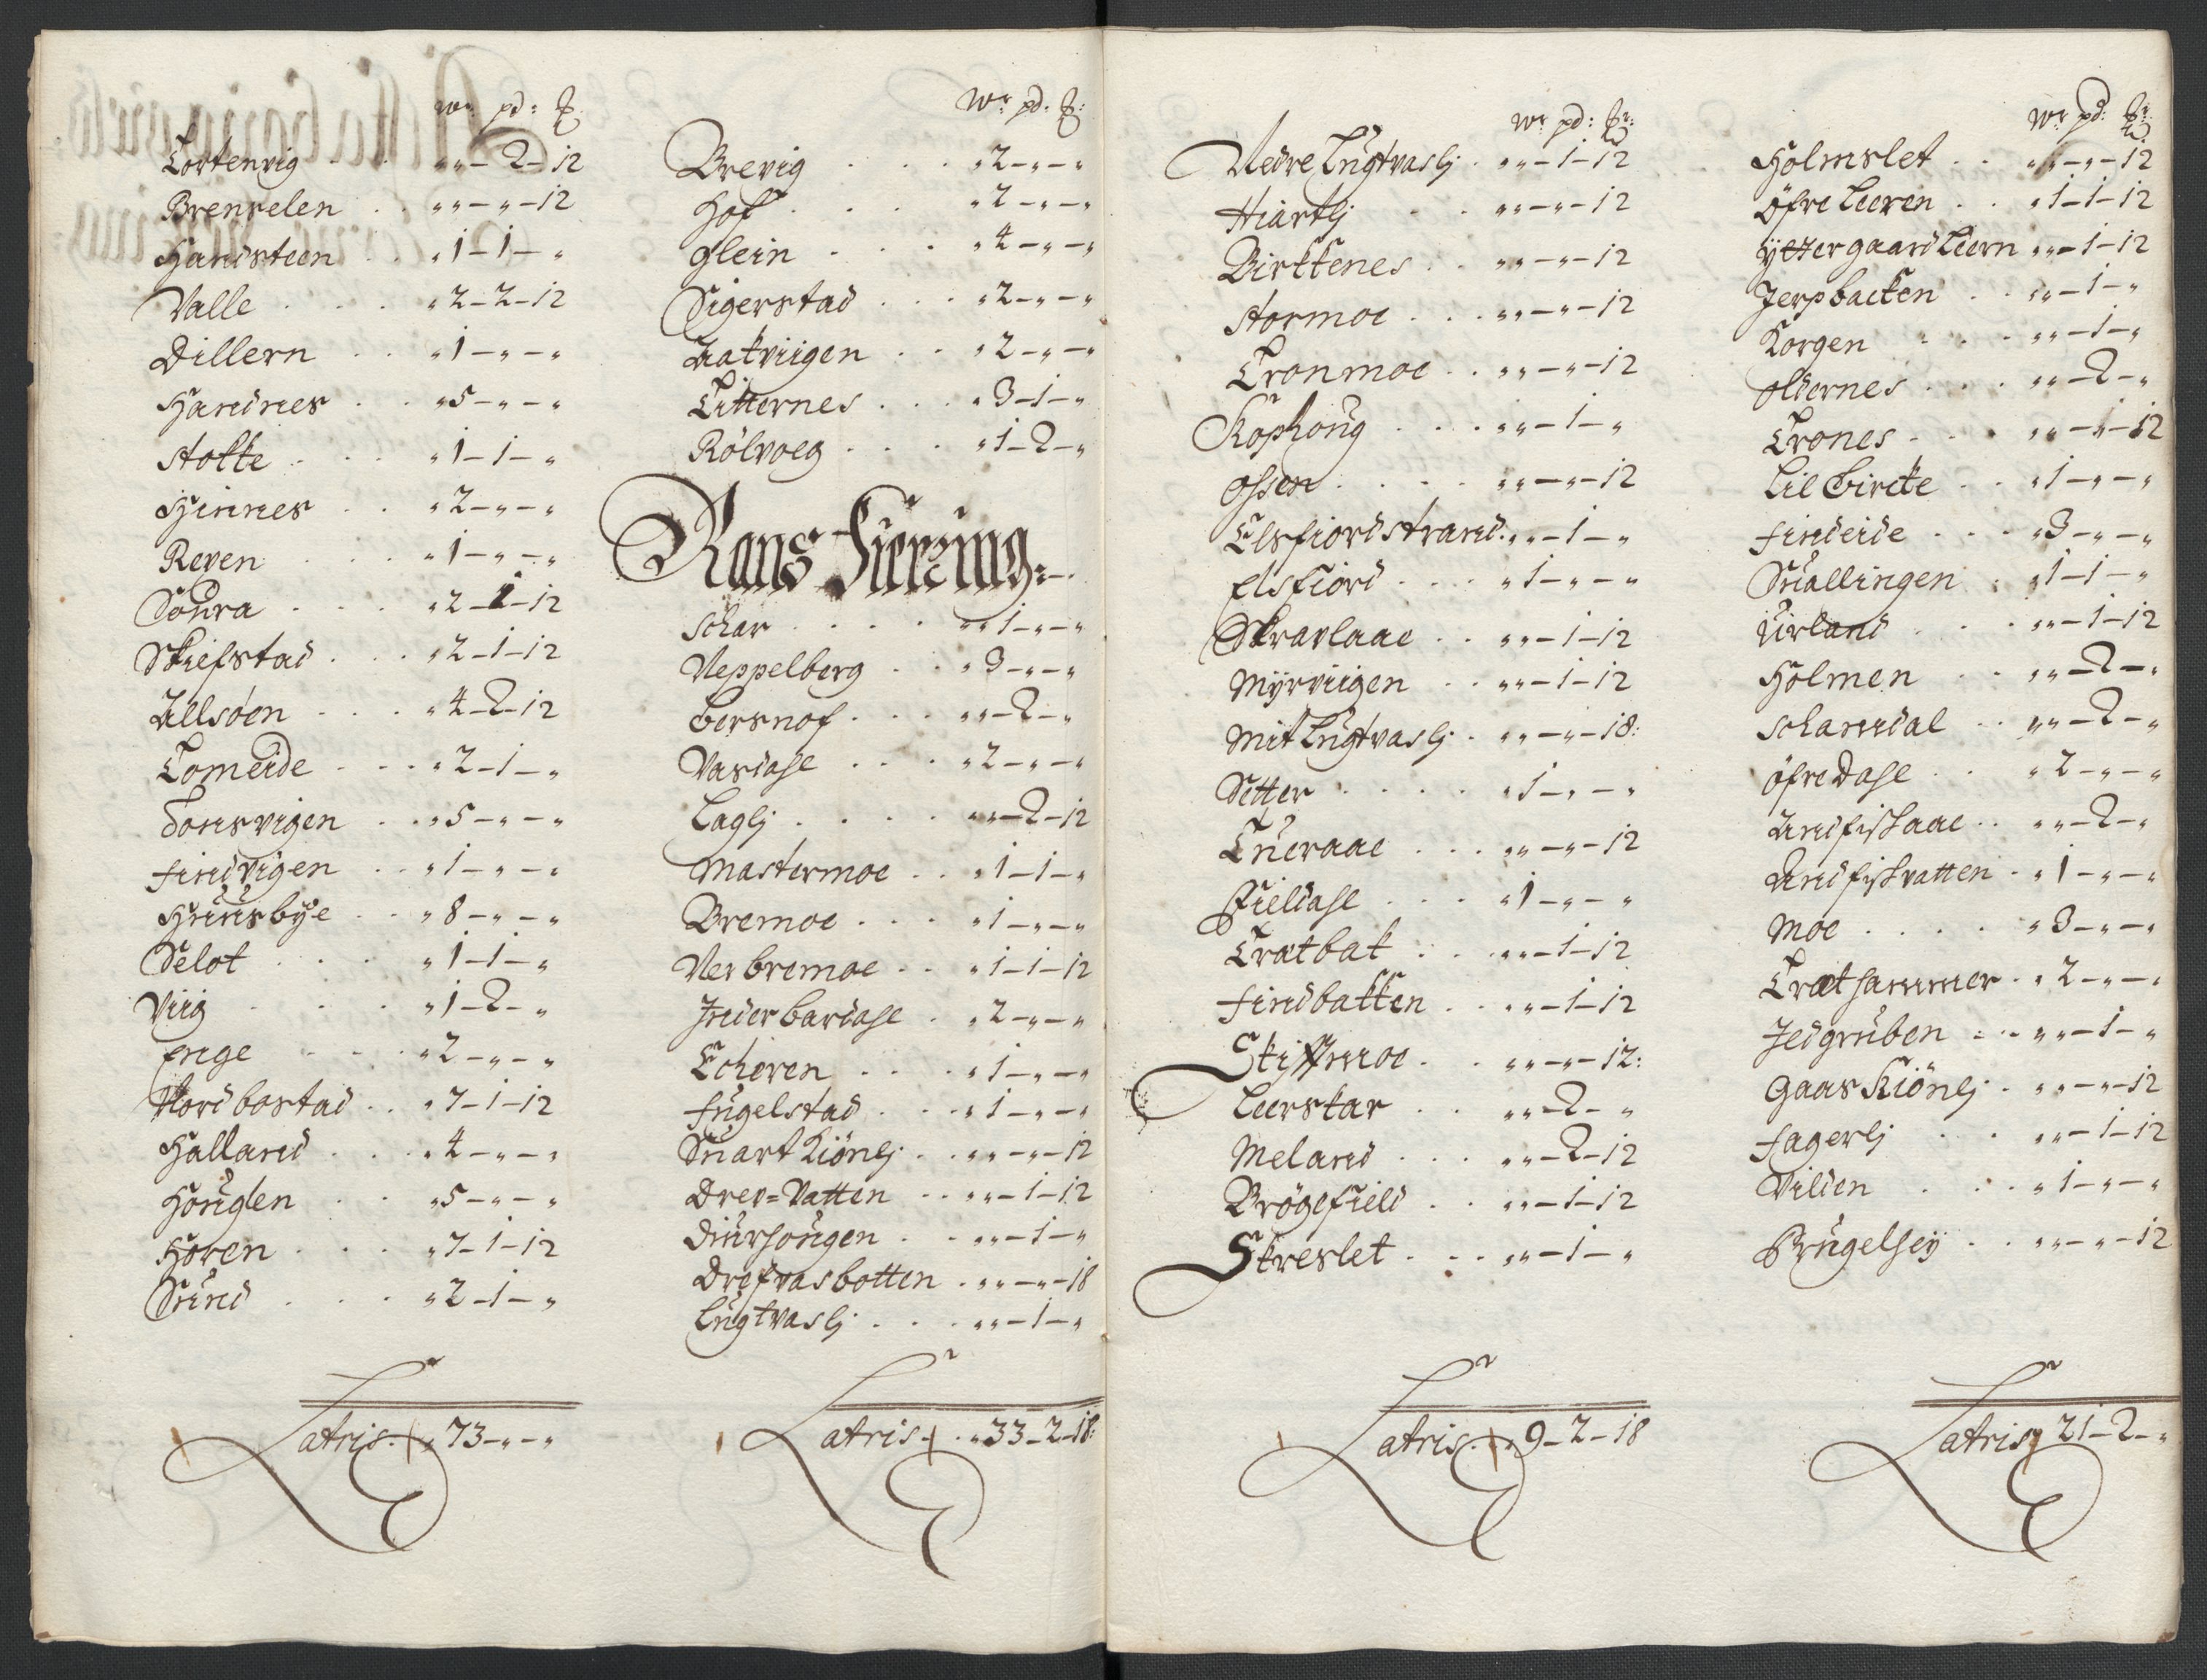 Wr pd: ℔:
Tortenvig . . „„ - 2 - 12
Brenselen . . „„ - „ - 12
Handsteen . . „ 1 - 1 - „
Valle . . . „ 2 - 2 - 12
Dillern . . „ 1 - „ - „
Handnes . . „ 5 - „ - „
Stokke . . . „ 1 - 1 - „
Hinnes . . „ 2 - „ - „
Reven . . . „ 1 - „ - „
Soura . . . „ 2 - 1 - 12
Skiefstad . . . „ 2 - 1 - 12
Allsøen . . . „ 4 - 2 - 12
Tomeide . . . „ 2 - 1 - „
Sonsvigen . . „ 5 - „ - „
Findvigen . . „ 1 - „ - „
Huusbÿe . . „ 8 - „ - „
Seløt . . . „ 1 - 1 - „
Viig . . . „ 1 - 2 - „
Enge . . . „ 2 - „ - „
Nordbostad . . „ 7 - 1 - 12
Halland . . . „ 4 - „ - „
Houglen . . „ 5 - „ - „
Horen . . . „ 7 - 1 - 12
Sund . . . „ 2 - 1 - „
Latris . „ 73 - „ - „
Wr pd: ℔:
Brevig . . . „ 2 - „ - „
Hof . . . „ 2 - „ - „
Glein . . . „ 4 - „ - „
Sigerstad . . . „ 2 - „ - „
Aakviigen . . „ 2 - „ - „
Titternes . . . „ 3 - 1 - „
Rölvoeg . . . „ 1 - 2 - „
Rans Fierring:
Schar . . . . „ 1 - „ - „
Neppelberg . . „ 3 - „ - „
Bersnof . . . „„ - 2 - „
Vasdahl . . . „ 2 - „ - „
Laglj . . . . „„ - 2 - 12
Mastermoe . . „ 1 - 1 - „
Bremoe . . . „ 1 - „ - „
Ner bremoe . . „ 1 - 1 - 12
Inderbardahl . „ 2 - „ - „
Echeren . . . „ 1 - „ - „
Fugelstad . . . „ 1 - „ - „
Suartkiönlj . . „„ - „ - 12
Drev=Vatten . . „„ - 1 - 12
Diurhougen . . „„ - 1 - „
Drefvasbotten . „„ - „ - 18
Lugtvaslj . . . „„ - 1 - „
Latris . . „ 33 - 2 - 18:
Wr pd: ℔:
Nedre Lugtvaslj . „„ - 1 - 12
Hiartlj . . „„ - „ - 12
Birkkenes . . „„ - „ - 12
Stormoe . . . „„ - „ - 12
Tronmoe . . „„ - „ - 12
Kophoug . . . „„ - 1 - „
Ossen . . . . „„ - „ - 12
Elsfiordstrand . „„ - 1 - „
Elsfiord . . . „ 1 - „ - „
Skravlaae . . „„ - 1 - 12
Mÿrviigen . . „„ - 1 - 12
Mit Lugtvaslj . „„ - „ - 18:
Setter . . . . „ 1 - „ - „
Tueraae . . . „„ - „ - 12
Fieldahl . . . „ 1 - „ - „
Tratbak . . „„ - 1 - 12
Findbakken . . „„ - 1 - 12
Skiffmoe . . „„ - „ - 12:
Leerskar . . „„ - 2 - „
Meland . . . „„ - 2 - 12
Brögefield . . „„ - 1 - 12
Skreslet . . . „„ - 1 - „
Latris . „ 9 - 2 - 18
Wr pd: ℔:
Holmslet . . „„ - „ - 12
Öfre Leeren . . „ 1 - 1 - 12
Ÿttergaard Leern „„ - 1 - 12
Jerpbacken . . „„ - 1 - „
Korgen . . . „„ - 1 - „
Oldernes . . . „„ - 2 - „
Trones . . . „„ - „ - 12
Lil bircke . . „ 1 - „ - „
Findeide . . . „ 3 - „ - „
Suallingen . „ 1 - 1 - „
Urland . . . „„ - 1 - 12
Holmen . . „„ - 2 - „
Schamdal . . „„ - 2 - „
Öfre Dahl . . „ 2 - „ - „
Andfiskaae . . „„ - 2 - „
Andfiskvatten . „ 1 - „ - „
Moe . . . . „ 3 - „ - „
Trethammer . „ 2 - „ - „
Jedgruben . . „„ - 1 - „
Gaaskiönlj . „„ - „ - 12
Fagerlj . . . „„ - 1 - 12
Vilden . . . „ 1 - „ - „
Brugelheÿ . . „„ - „ - 12
Latris „ 21 - 2 - „